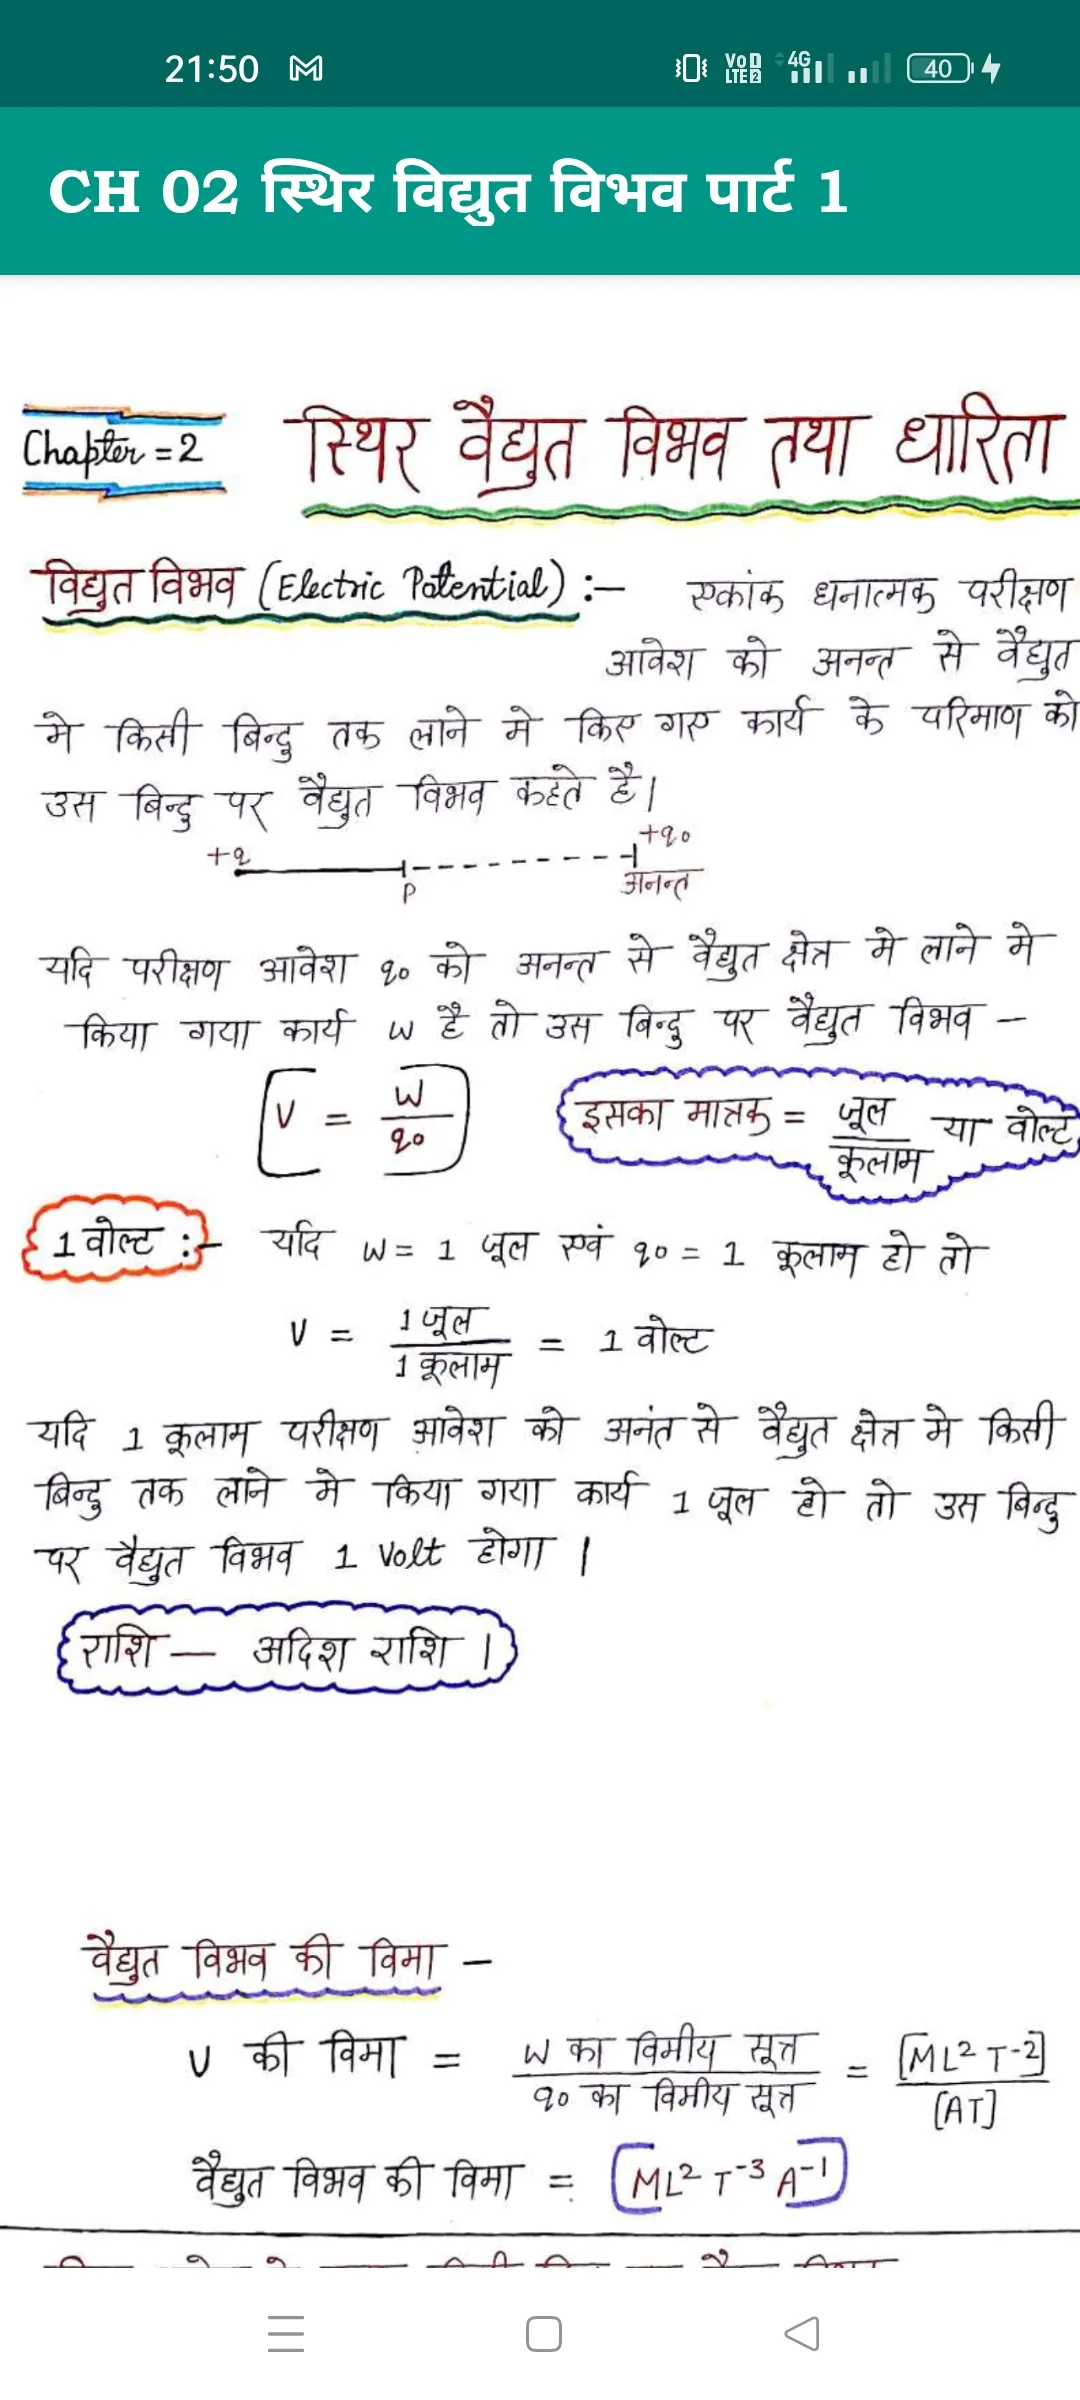 21:50
VoD LTE 2 4G 40
CH 02 स्थिर विद्युत विभव पार्ट 1
Chapter = 2 स्थिर वैद्युत विभव तथा धारिता
विद्युत विभव (Electric Potential) :- एकांक धनात्मक परीक्षण
आवेश को अनन्त से वैद्युत
मे किसी बिन्दु तक लाने मे किए गए कार्य के परिमाण को
उस बिन्दु पर वैद्युत विभव कहते है।
+q P +q₀ अनन्त
यदि परीक्षण आवेश q₀ को अनन्त से वैद्युत क्षेत्र मे लाने मे
किया गया कार्य W है तो उस बिन्दु पर वैद्युत विभव –
V = W / q₀ इसका मात्रक = जूल / कूलाम या वोल्ट
1 वोल्ट :- यदि W = 1 जूल एवं q₀ = 1 कूलाम हो तो
V = 1 जूल / 1 कूलाम = 1 वोल्ट
यदि 1 कूलाम परीक्षण आवेश को अनंत से वैद्युत क्षेत्र मे किसी
बिन्दु तक लाने मे किया गया कार्य 1 जूल हो तो उस बिन्दु
पर वैद्युत विभव 1 Volt होगा ।
राशि – अदिश राशि ।
वैद्युत विभव की विमा –
V की विमा = W का विमीय सूत्र / q₀ का विमीय सूत्र = [ML² T⁻²] / [AT]
वैद्युत विभव की विमा = [ML² T⁻³ A⁻¹]